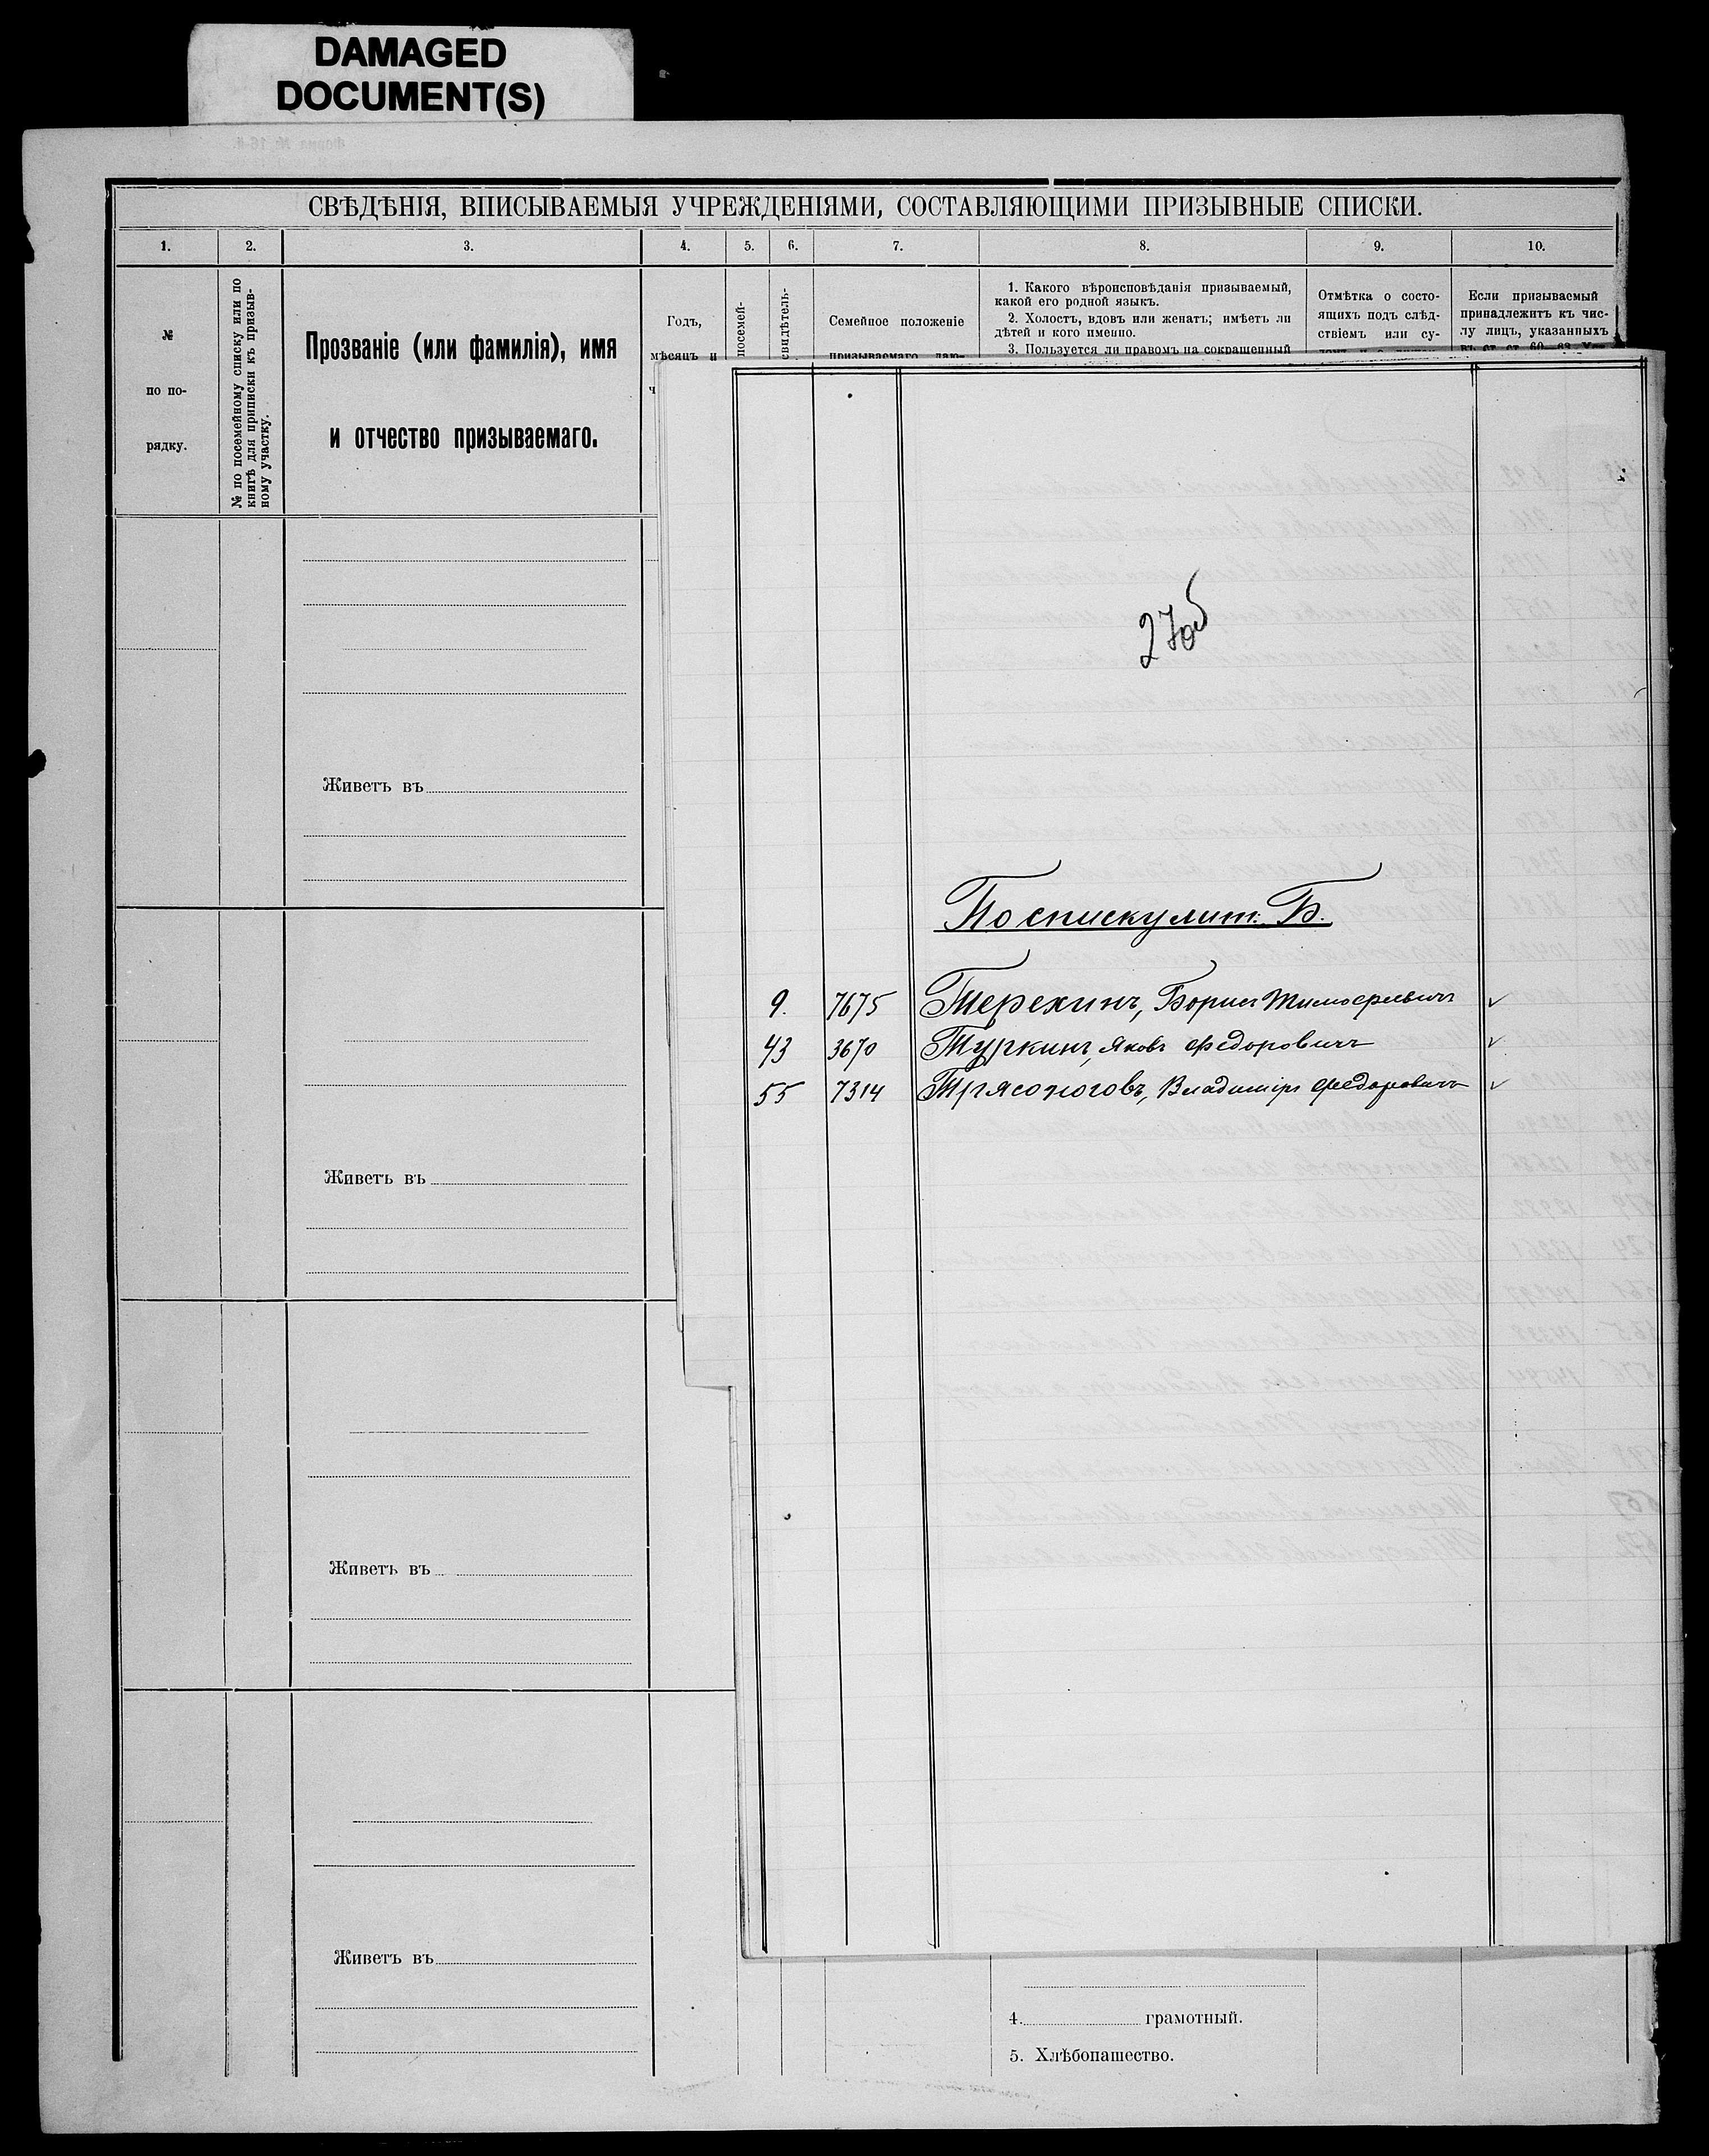 DAMAGED
DOCUMENT(S)
СВѢДѢНІЯ, ВПИСЫВАЕМЫЯ УЧРЕЖДЕНІЯМИ, СОСТАВЛЯЮЩИМИ ПРИЗЫВНЫЕ СПИСКИ.
1. 2. 3. 4. 5. 6. 7. 8. 9. 10.
№
по по-
рядку.
№ по посемейному списку или по
книгѣ для приписки къ призыв-
ному участку.
Прозваніе (или фамилія), имя
и отчество призываемаго.
Годъ,
мѣсяцъ и
ч
посемей-
свидѣтель-
Семейное положеніе
призываемаго, даю-
1. Какого вѣроисповѣданія призываемый,
какой его родной языкъ.
2. Холостъ, вдовъ или женатъ; имѣетъ ли
дѣтей и кого именно.
3. Пользуется ли правомъ на сокращенный
Отмѣтка о состо-
ящихъ подъ слѣд-
ствіемъ или су-
Если призываемый
принадлежитъ къ чис-
лу лицъ, указанныхъ
въ ст. ст. 60—63 Уст.
27об
По списку лит. Б.
9. 7675 Терехинъ, Борисъ Тимофеевичъ ✓
43 3670 Туркинъ, Яковъ Федоровичъ ✓
55 7314 Трясоноговъ, Владиміръ Федоровичъ ✓
Живетъ въ
Живетъ въ
Живетъ въ
Живетъ въ
4. грамотный.
5. Хлѣбопашество.